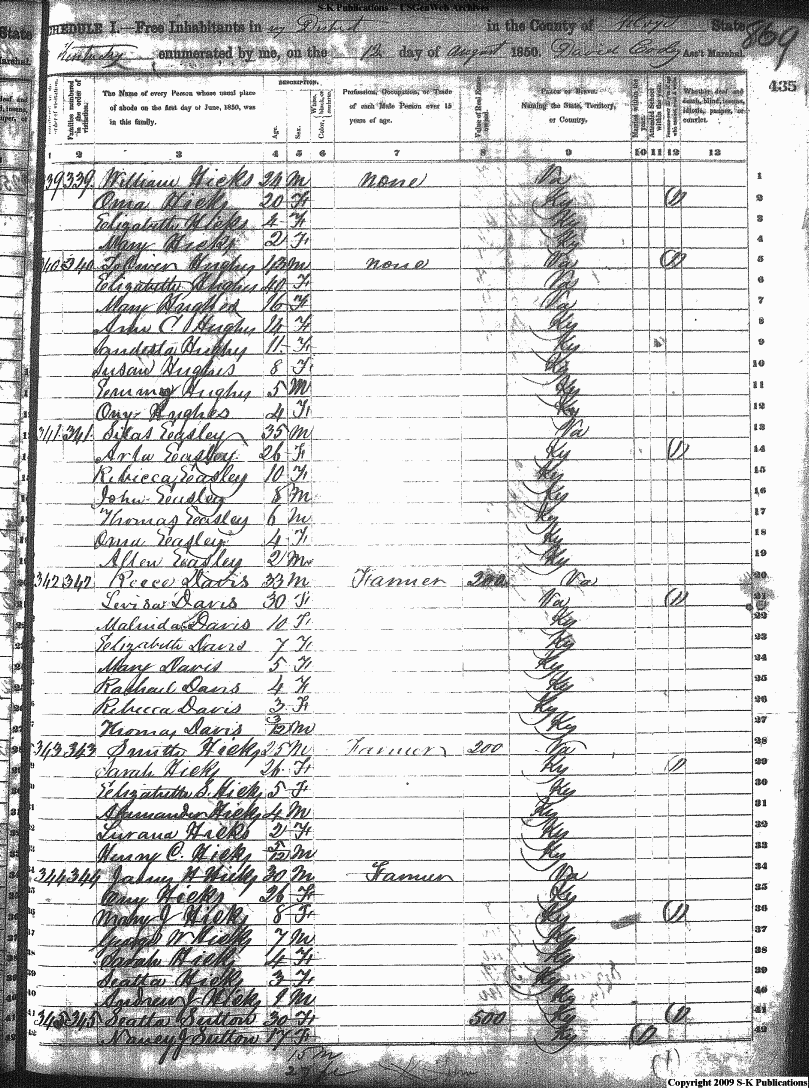 S-K Publications - USGenWeb Archives
SCHEDULE I.—Free Inhabitants in District in the County of Floyd State
Kentucky enumerated by me, on the 12 day of August 1850. David Ass't Marshal.
869
435
Families numbered in the order of visitation.
The Name of every Person whose usual place of abode on the first day of June, 1850, was in this family.
DESCRIPTION.
Age. Sex. Color
Profession, Occupation, or Trade of each Male Person over 15 years of age.
Value of Real Estate owned.
PLACE OF BIRTH. Naming the State, Territory, or Country.
Married within the year. Attended School within the year.
Whether deaf and dumb, blind, insane, idiotic, pauper, or convict.
1 2 3 4 5 6 7 8 9 10 11 12 13
339 339 William Hicks 24 M none Va 1
Oma Hicks 20 F Ky 1 2
Elizabeth Hicks 4 F Ky 3
Mary Hicks 2 F Ky 4
340 340 Hughs 13 M none Va 1 5
Elizabeth Hughs 40 F Va 6
Mary Hughes 16 F Va 7
Ann C. Hughs 14 F Ky 8
Hughs 11 F Ky 9
Susan Hughes 8 F Ky 10
Hughs 5 M Ky 11
Hughes 4 F Ky 12
341 341 Silas Easley 35 M Va 13
Easley 26 F Ky 1 14
Rebecca Easley 10 F Ky 15
John Easley 8 M Ky 16
Thomas Easley 6 M Ky 17
Oma Easley 4 F Ky 18
Allen Easley 2 M Ky 19
342 342 Reece Davis 33 M Farmer 200 Va 20
Levisa Davis 30 F Va 1 21
Malinda Davis 10 F Ky 22
Elizabeth Davis 7 F Ky 23
Mary Davis 5 F Ky 24
Rachael Davis 4 F Ky 25
Rebecca Davis 3 F Ky 26
Thomas Davis 3/12 M Ky 27
343 343 Smith Hicks 25 M Farmer 200 Va 28
Sarah Hicks 26 F Ky 1 29
Elizabeth S. Hicks 5 F Ky 30
Hicks 4 M Ky 31
Lurana Hicks 2 F Ky 32
Henry C. Hicks M Ky 33
344 344 James H Hicks 30 M Farmer Va 34
Hicks 26 F Ky 35
Mary J Hicks 8 F Ky 1 36
George W Hicks 7 M Ky 37
Sarah Hicks 4 F Ky 38
Seatta Hicks 3 F Ky 39
Andrew J Hicks 9 M Ky 40
345 345 Seatta Sutton 30 F 500 Ky 1 41
Nancy J Sutton 17 F Ky 1 42
15 m
(1)
Copyright 2009 S-K Publications